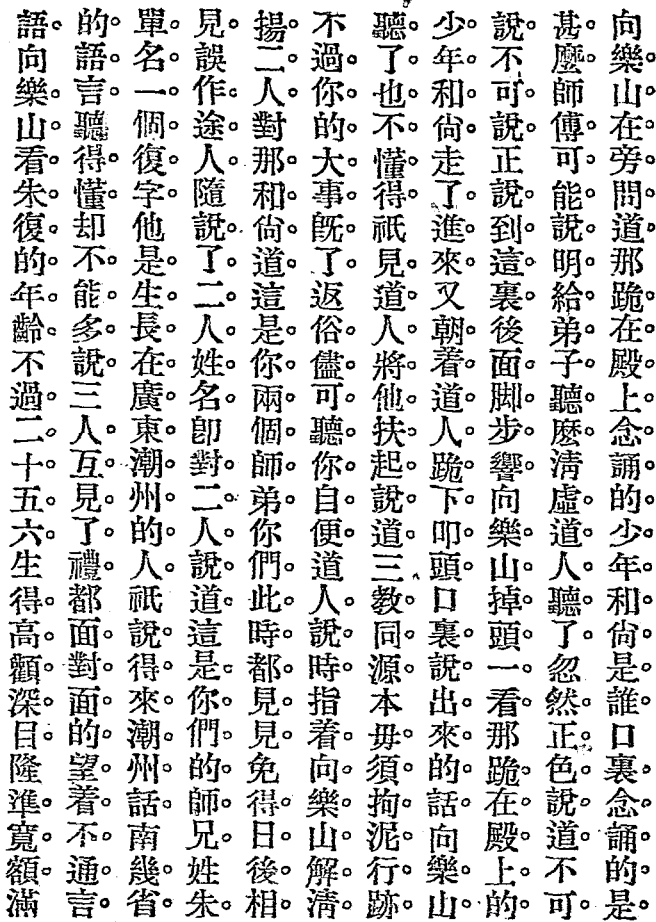 向樂山在旁問道那跪在殿上念誦的少年和尙是誰口裏念誦的是
甚麼師傅可能說明給弟子聽麼淸虛道人聽了忽然正色說道不可
說不可說正說到這裏後面脚步響向樂山掉頭一看那跪在殿上的
少年和尙走了進來又朝着道人跪下叩頭口裏說出來的話向樂山
聽了也不懂得祇見道人將他扶起說道三敎同源本毋須拘泥行跡
不過你的大事旣了返俗儘可聽你自便道人說時指着向樂山解淸
揚二人對那和尙道這是你兩個師弟你們此時都見見免得日後相
見誤作途人隨說了二人姓名卽對二人說道這是你們的師兄姓朱
單名一個復字他是生長在廣東潮州的人祇說得來潮州話南幾省
的語言聽得懂却不能多說三人互見了禮都面對面的望着不通言
語向樂山看朱復的年齡不過二十五六生得高顴深目隆準寬額滿